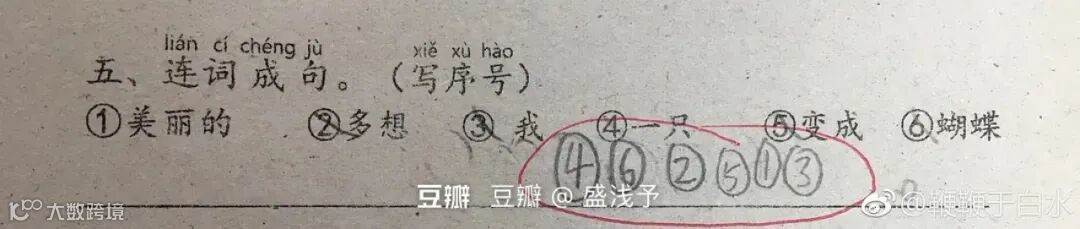 lián cí chéng jù xiě xù hào
五、连词成句。（写序号）
①美丽的 ②多想 ③我 ④一只 ⑤变成 ⑥蝴蝶
④⑥②⑤①③
豆瓣 豆瓣@盛浅予
大数跨境 @鞭鞭于白水